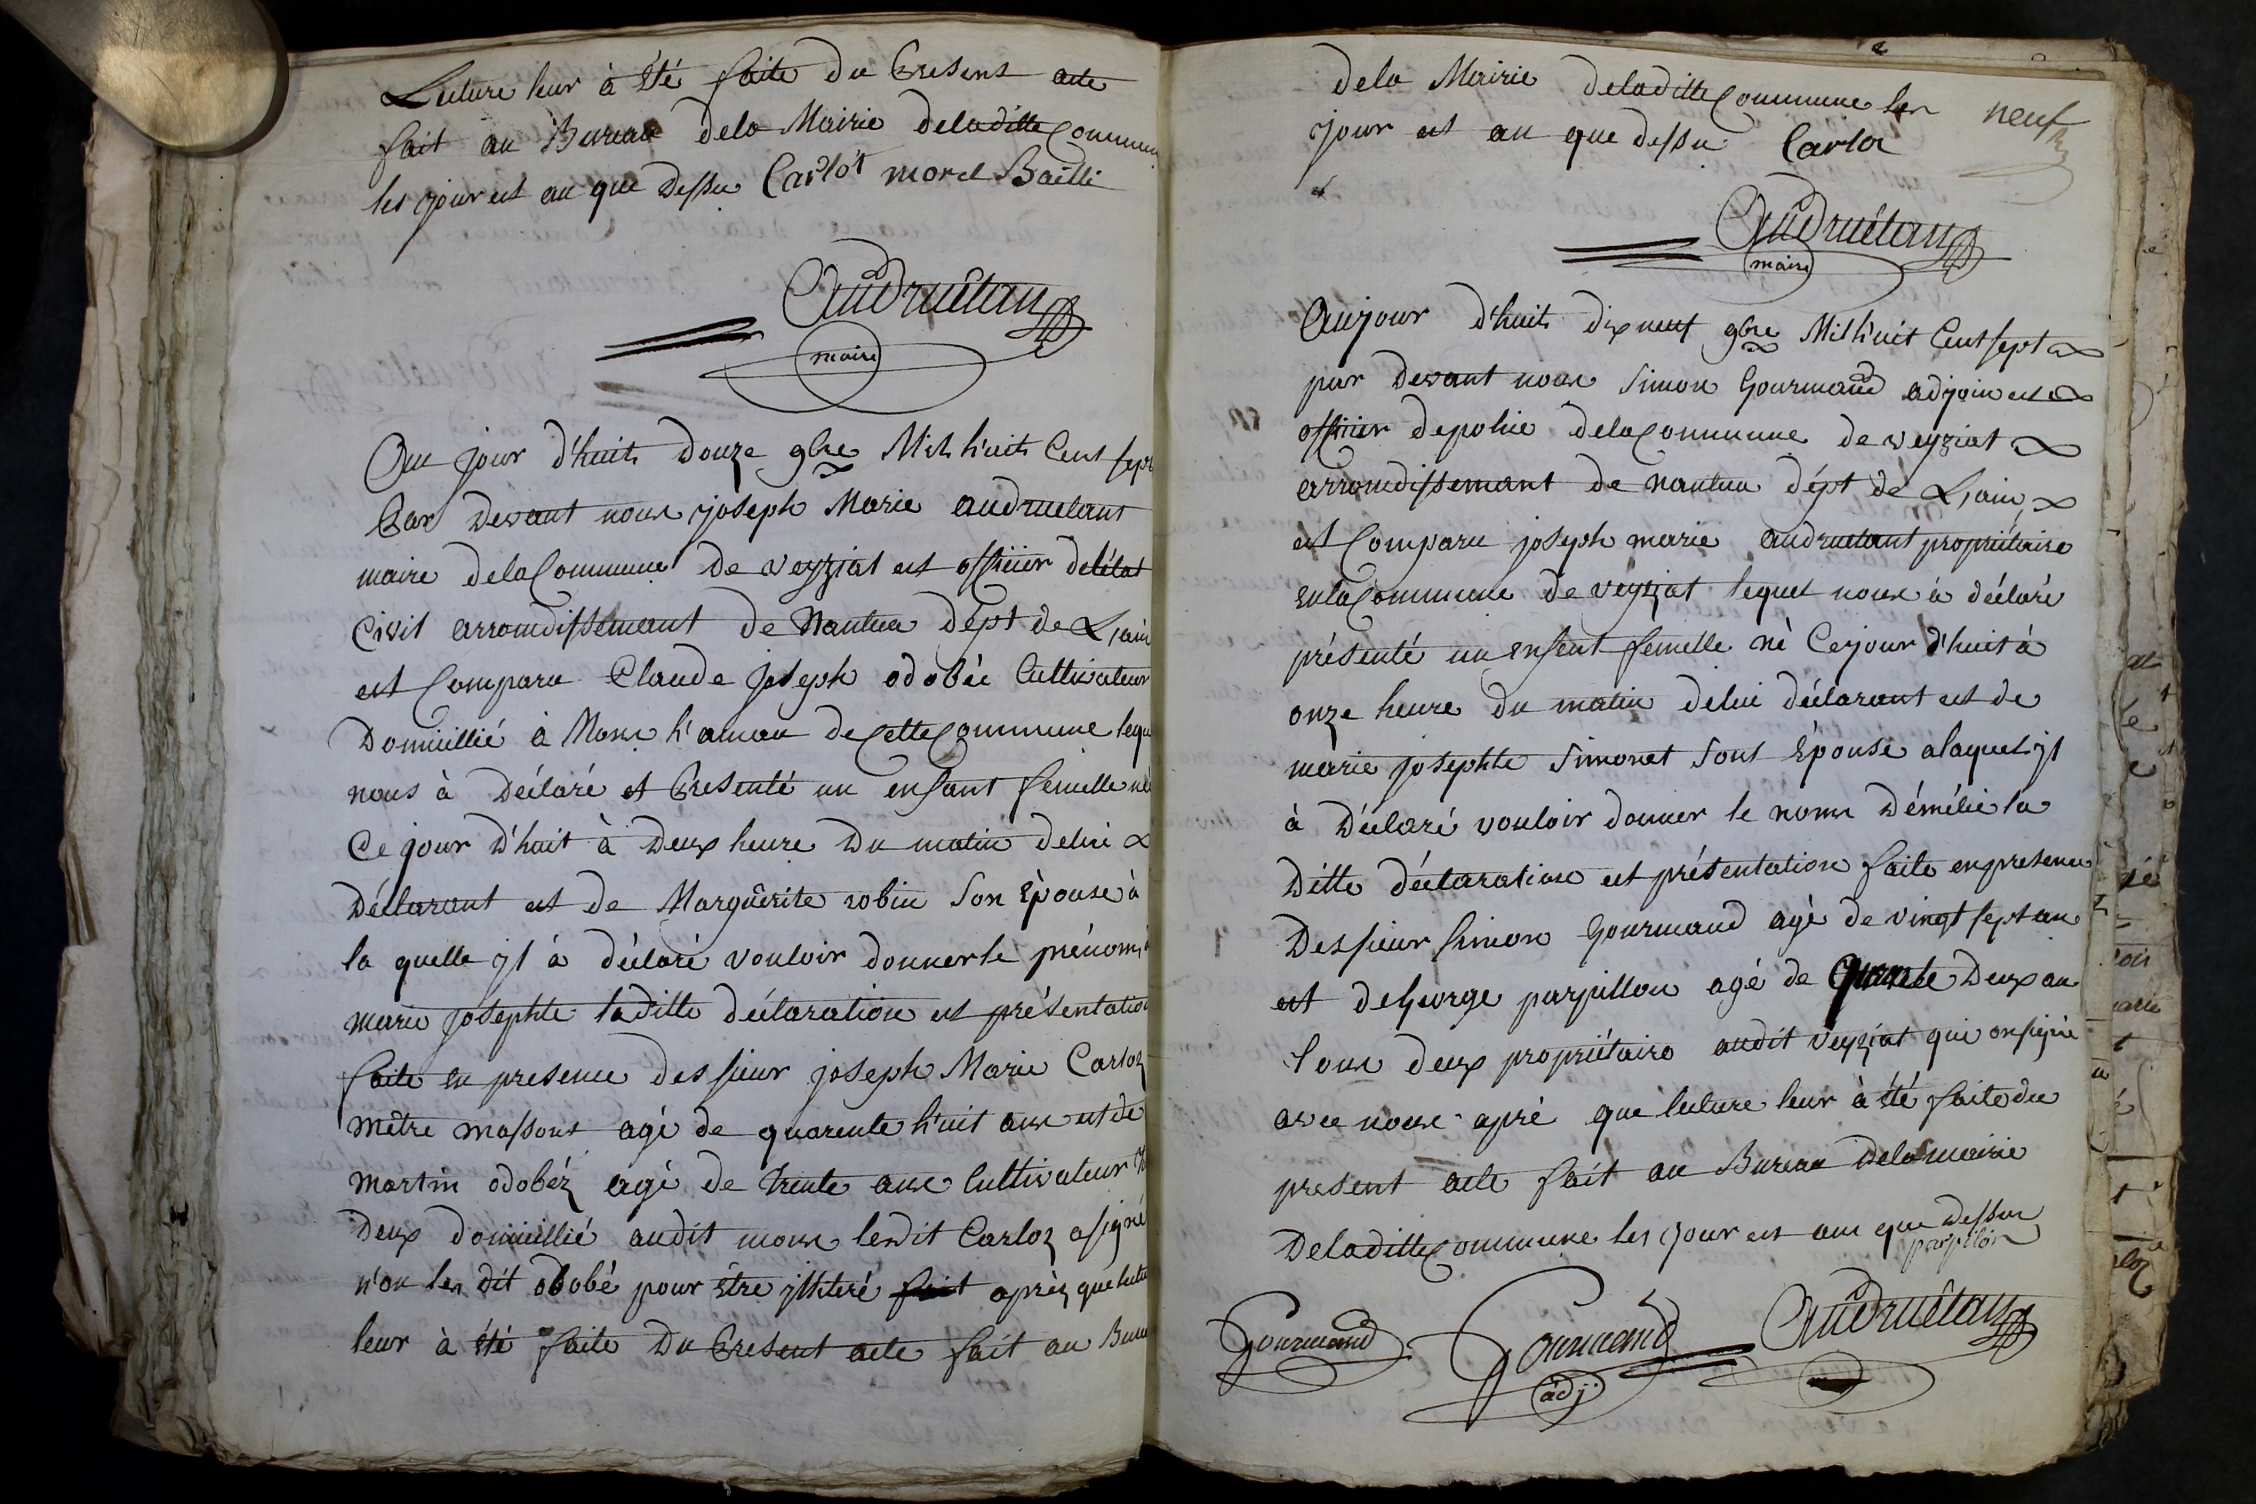 Lecture leur à Été faite du Present acte
fait au Bureau dela Mairie deladitte Commun
les jour est an que dessu Carlot morel Bailli
Audruétan
maire
Au jour d'huit douze 9bre Mil h'uit Cent sept
Par Devant nous joseph Marie audruetant
maire dela Commune de veyziat est officier del'état
Civil arromdissemant de Nantua dépt de L'ain
est Comparu Claude joseph odobéz Cultivateur
Domicillié à Mons h'amau de Cette Commune lequ
nous à Déclaré et Presenté un enfant femelle né
Ce jour D'huit à Deux heure Du matin delui
Déclarant est de Marguérite robin Son Épouse à
la quelle jl à déclaré vouloir donner le prénom
marie josephte laditte déclaration est présentation
faite en presence des sieur joseph Marie Carloz
mêtre massons agé de quarente h'uit ans est de
martin odobéz agé de trente ans Cultivateur
Deux domicillié audit mons ledit Carloz a signé
n'on les dit odobé pour Être jllitéré fait aprèz que lectu
leur à été faite Du Present acte fait au Bure
dela Mairie deladitte Commune les
jour est an que dessu Carlot
neuf
Audruétan
maire
Aujour d'huit dix neuf 9bre Mil h'uit Cent sept
par devant nous Simon Gourmand adjoin est
officier depolice dela Commune de veyziat
arromdissemant de nantua dépt de L'ain
est Comparu joseph marie audruetant propriétaire
enla Commune de veyziat lequel nous à déclaré
présenté un enfent femelle né Cejour d'huit à
onze heure du matin delui déclarant est de
marie josephte Simonet Sont Épouse alaquel jl
à Déclaré vouloir donner le noms Démélie la
Ditte déclaration est présentation faite en presence
Des sieur Simon Gourmand agé de vingt sept ans
est de George parpillon agé de quarente Deux an
tous deux propriétaire audit veyziat qui on signé
avec nous apré que lecture leur à été faite du
present acte fait au Bureau dela mairie
Deladitte Commune les jour est an que Dessu
parpilon
Gourmand Gourmand Audruétan
adj: